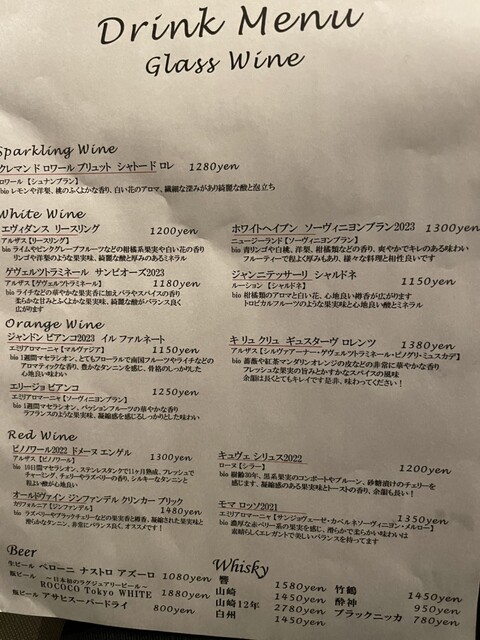 Drink Menu
Glass Wine
Sparkling Wine
クレマンド ロワール ブリュット シャトード ロレ 1280yen
ロワール 【シュナンブラン】
bio レモンや洋梨、桃のふくよかな香り、白い花のアロマ、繊細な深みがあり綺麗な酸と泡立ち
White Wine
エヴィダンス リースリング 1200yen
アルザス【リースリング】
bio ライムやピンクグレープフルーツなどの柑橘系果実や白い花の香り
リンゴや洋梨のような果実味、綺麗な酸と厚みのあるミネラル
ゲヴェルツトラミネール サンビオーズ2023 1180yen
アルザス【ゲヴェルツトラミネール】
bio ライチなどの華やかな果実香に加えバラやスパイスの香り
柔らかな甘みとふくよかな果実味、綺麗な酸がバランス良く
広がります
ホワイトヘイブン ソーヴィニヨンブラン2023 1300yen
ニュージーランド【ソーヴィニヨンブラン】
bio 青リンゴや白桃、洋梨、柑橘類などの香り、爽やかでキレのある味わい
フルーティーで程よく厚みもあり、様々な料理と相性良いです
ジャンニテッサーリ シャルドネ 1150yen
ルーション【シャルドネ】
bio 柑橘類のアロマと白い花、心地良い樽香が広がります
トロピカルフルーツのような果実味と心地良い酸とミネラル
Orange Wine
ジャンドン ビアンコ2023 イル ファルネート 1150yen
エミリアロマーニャ【マルヴァジア】
bio 1週間マセラシオン、とてもフローラルで南国フルーツやライチなどの
アロマティックな香り、豊かなタンニンを感じ、骨格のしっかりした
心地良い味わい
エリージョ ビアンコ 1250yen
エミリアロマーニャ【ソーヴィニヨンブラン】
bio 1週間マセラシオン、パッションフルーツの華やかな香り
ラフランスのような果実味、凝縮感を感じるしっかりとした味わい
キ リュ クリュ ギュスターヴ ロレンツ 1380yen
アルザス【シルヴァーナー・ゲヴェルツトラミネール・ピノグリ・ミュスカデ】
bio 薔薇や紅茶マンダリンオレンジの皮などの非常に華やかな香り
フレッシュな果実の旨みとかすかなスパイスの風味
余韻は長くとてもキレイです是非、味わってください!
Red Wine
ピノノワール2022 ドメーヌ エンゲル 1300yen
アルザス【ピノノワール】
bio 10日間マセラシオン、ステンレスタンクで11ヶ月熟成、フレッシュで
チャーミング、チェリーやラズベリーの香り、シルキーなタンニンと
程よい酸が心地良い
オールドヴァイン ジンファンデル クリンカー ブリック 1480yen
カリフォルニア【ジンファンデル】
bio ラズベリーやブラックチェリーなどの果実香と樽香、凝縮された果実味と
滑らかなタンニン、非常にバランス良く、オススメです!
キュヴェ シリュス2022 1200yen
ローヌ【シラー】
bio 樹齢30年、黒系果実のコンポートやプルーン、砂糖漬けのチェリーを
感じます、凝縮感のある果実味とトーストの香り、余韻も長い!
モマ ロッソ2021 1350yen
エミリアロマーニャ【サンジョヴェーゼ・カベルネソーヴィニヨン・メルロー】
bio 濃厚な赤ベリー系の果実を感じ、滑らかで柔らかい味わいは
素晴らしくエレガントで美しいバランスを持ってます
Beer
生ビール ペローニ ナストロ アズーロ 1080yen
瓶ビール ～日本初のラグジュアリービール～
ROCOCO Tokyo WHITE 1880yen
瓶ビール アサヒスーパードライ 800yen
Whisky
響 1580yen 竹鶴 1450yen
山崎 1450yen 酔神 950yen
山崎12年 2780yen ブラックニッカ 780yen
白州 1450yen